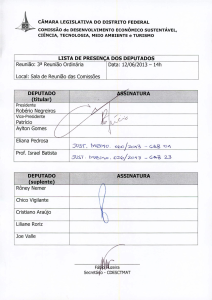 CÂMARA LEGISLATIVA DO DISTRITO FEDERAL
COMISSÃO de DESENVOLVIMENTO ECONÔMICO SUSTENTÁVEL,
CIÊNCIA, TECNOLOGIA, MEIO AMBIENTE e TURISMO
LISTA DE PRESENÇA DOS DEPUTADOS
Reunião: 3ª Reunião Ordinária Data: 12/06/2013 – 14h
Local: Sala de Reunião das Comissões
DEPUTADO
(titular) ASSINATURA
Presidente
Robério Negreiros
Vice-Presidente
Patrício
Aylton Gomes
Eliana Pedrosa
Prof. Israel Batista
DEPUTADO
(suplente) ASSINATURA
Rôney Nemer
Chico Vigilante
Cristiano Araújo
Liliane Roriz
Joe Valle
Secretário - CDESCTMAT